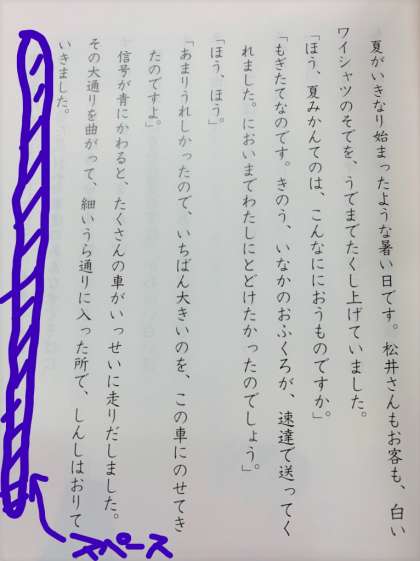 夏がいきなり始まったような暑い日です。松井さんもお客も、白い
ワイシャツのそでを、うでまでたくし上げていました。
「ほう、夏みかんてのは、こんなににおうものですか。」
「もぎたてなのです。きのう、いなかのおふくろが、速達で送ってく
れました。においまでわたしにとどけたかったのでしょう。」
「ほう、ほう。」
「あまりうれしかったので、いちばん大きいのを、この車にのせてき
たのですよ。」
信号が青にかわると、たくさんの車がいっせいに走りだしました。
その大通りを曲がって、細いうら通りに入った所で、しんしはおりて
いきました。
スペース